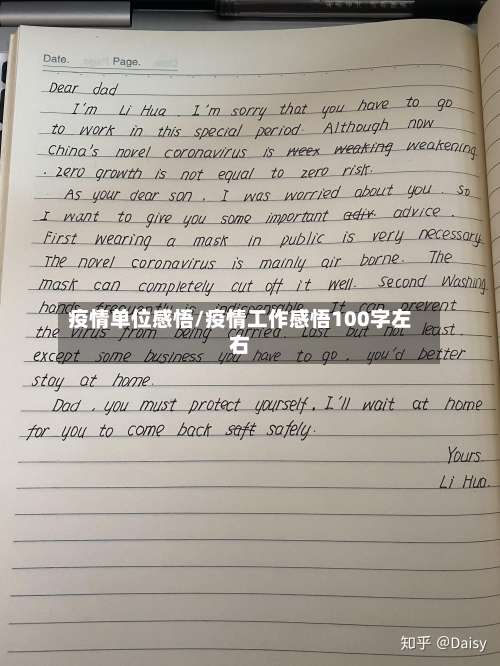 Date. Page.
Dear dad
I'm Li Hua I'm sorry that you have to go
to work in this special period. Although now
China's novel coronavirus is weex weaking weakening.
. zero growth is not equal to zero risk.
As your dear son , I was worried about you . So
I want to give you some important adjv. advice .
First wearing a mask in public is very necessary
The novel coronavirus is mainly air borne. The
mask can completely cut off it well. Second Washing
hands frequently is indispensable. It can prevent
疫情单位感悟/疫情工作感悟100字左
the virus from being carried. Last but not least,
右
except some business you have to go , you'd better
stay at home.
Dad , you must protect yourself, I'll wait at home
for you to come back saft safely.
Yours.
Li Hua.
知乎 @Daisy